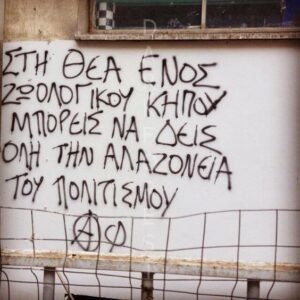 ΣΤΗ ΘΕΑ ΕΝΟΣ
ΖΩΟΛΟΓΙΚΟΥ ΚΗΠΟΥ
ΜΠΟΡΕΙΣ ΝΑ ΔΕΙΣ
ΟΛΗ ΤΗΝ ΑΛΑΖΟΝΕΙΑ
ΤΟΥ ΠΟΛΙΤΙΣΜΟΥ
Ⓐ Φ